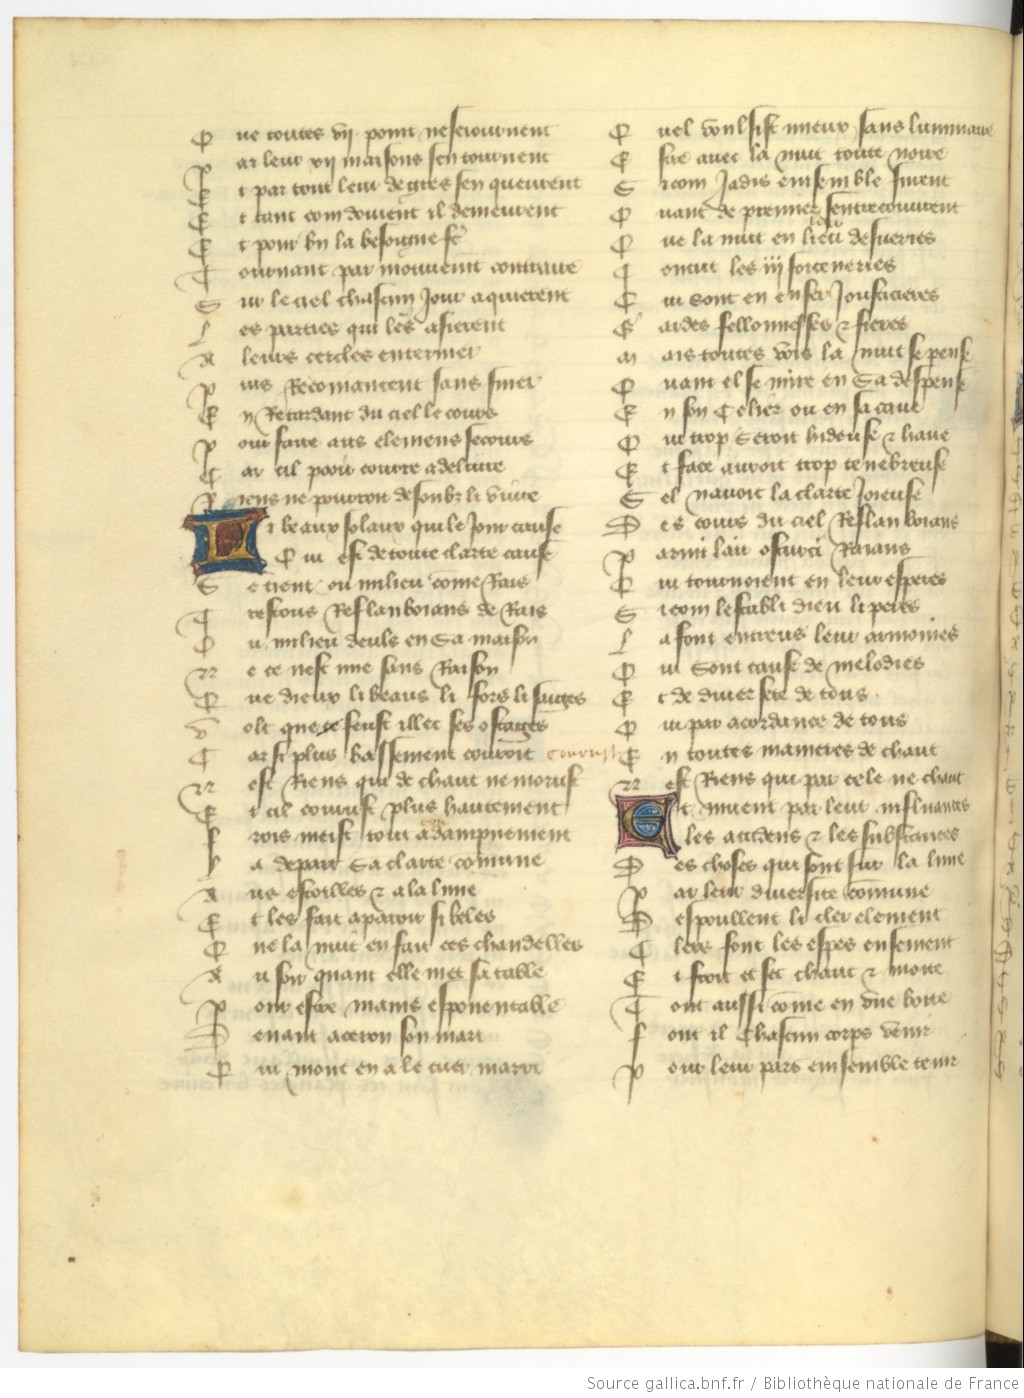 Que toutes vij point ne seiournent
Par leur xij maisons sen tournent
Et par tout leur degres sen queurent
Et tant com doiuent il demeurent
Et pour bn la besoigne fe
Tournant par mouuemt contraire
Sur le ciel chascun Jour aquierent
Les parties qui les afierent
A leurs cercles enteriner
Puis Recomancent sans finer
En Retardant du ciel le cours
Pour faire aus elemens secours
Car cil pooit courre a deliure
Riens ne pourroit desoubz li viure
Li beaux solaux qui le Jour cause
Qui est de toute clarte cause
Se tient ou milieu come Rois
Trestous Reflanboians de Rais
Ou milieu deuls en Sa maison
Ne ce nest mie sans Raison
Que dieux li beaus li fors li saiges
Volt que ce feust illec ses ostaiges
Car si plus bassement couroit
Nest Riens qui de chaut ne morust
Et cil courust plus hautement
Frois meist tout a dampnement
La depart Sa clarte comune
Aus estoilles & a la lune
Et les fait aparoir si beles
Que la nuit en fait ces chandelles
Au soir quant elle met sa table
Pour estre mains esponentable
Deuant aceron son mari
Qui mont en a le cuer marri
Quel vousist mieux sans luminaire
Estre auec la nuit toute noire
Sicom Jadis ensemble furent
Quant de premier sentrecounurent
Que la nuit en lieu desueries
Concut les iij forceneries
Qui Sont en enfer Jousticieres
Gardes fellonnesses & fieres
Mais toutes vois la nuit se pense
Quant el se mire en Sa despense
En son Celier ou en sa caue
Qui trop Seroit hideuse & haue
Et face auroit trop tenebreuse
Sel nauoit la clarte Joieuse
Des cours du ciel Reflanboians
Parmi lair oscurci Raians
Qui tournoient en leur esperes
Sicom lestabli dieu li peres
La font entreus leur armonies
Qui Sont cause de melodies
Et de diuersete de tons
Qui par acordance de tons
En toutes manieres de chant
Nest Riens qui par cele ne chant
Et muent par leur influances
les accidens & les substances
Des choses qui sont sur la lune
Par leur diuersite comune
Despoullent li cler element
Clers font les espes ensement
Et froit et sec chaut & moite
Tont aussi come en dne boite
Font il Chascun corps venir
Pour leur pars emsemble tenir